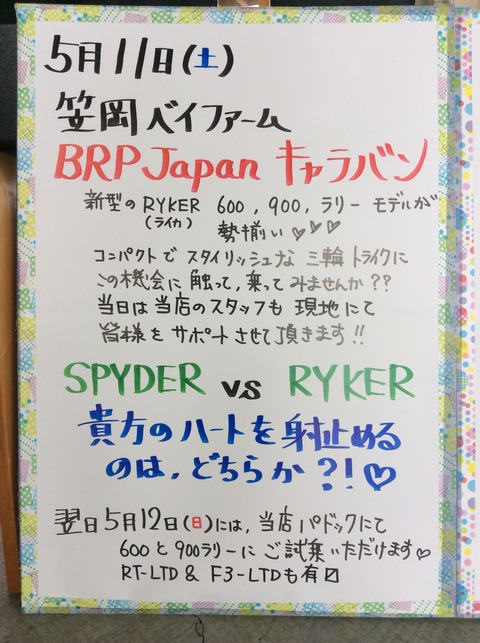 5月11日(土)
笠岡ベイファーム
BRP Japan キャラバン
新型のRYKER 600, 900, ラリー モデルが
(ライカ)
勢揃い♡♡♡
コンパクトで スタイリッシュな 三輪トライクに
この機会に 触って, 乗って みませんか??
当日は 当店のスタッフも 現地にて
皆様を サポートさせて頂きます!!
SPYDER vs RYKER
貴方のハートを射止める
のは, どちらか?!♡
翌日5月12日(日)には, 当店パドックにて
600と900ラリーにご試乗いただけます♡
RT-LTD & F3-LTDも有〼